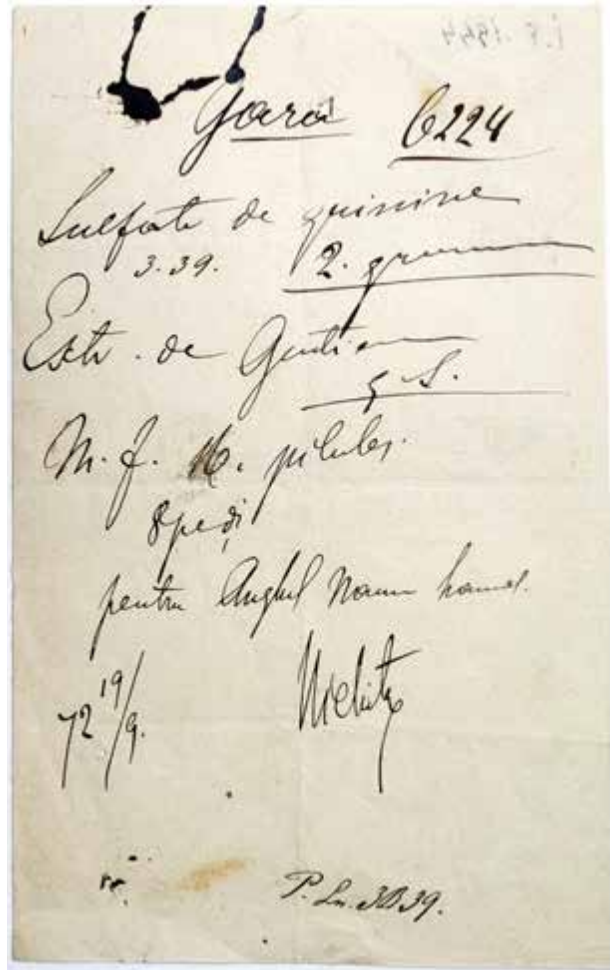 Gara 6224
Sulfate de quinine
3.39. 2. gramme
Extr. de Gentiane
q S.
M. f. 16. pilules.
pentru Anghel Naum hamal.
72 19/9.
P. Ln. 3B39.